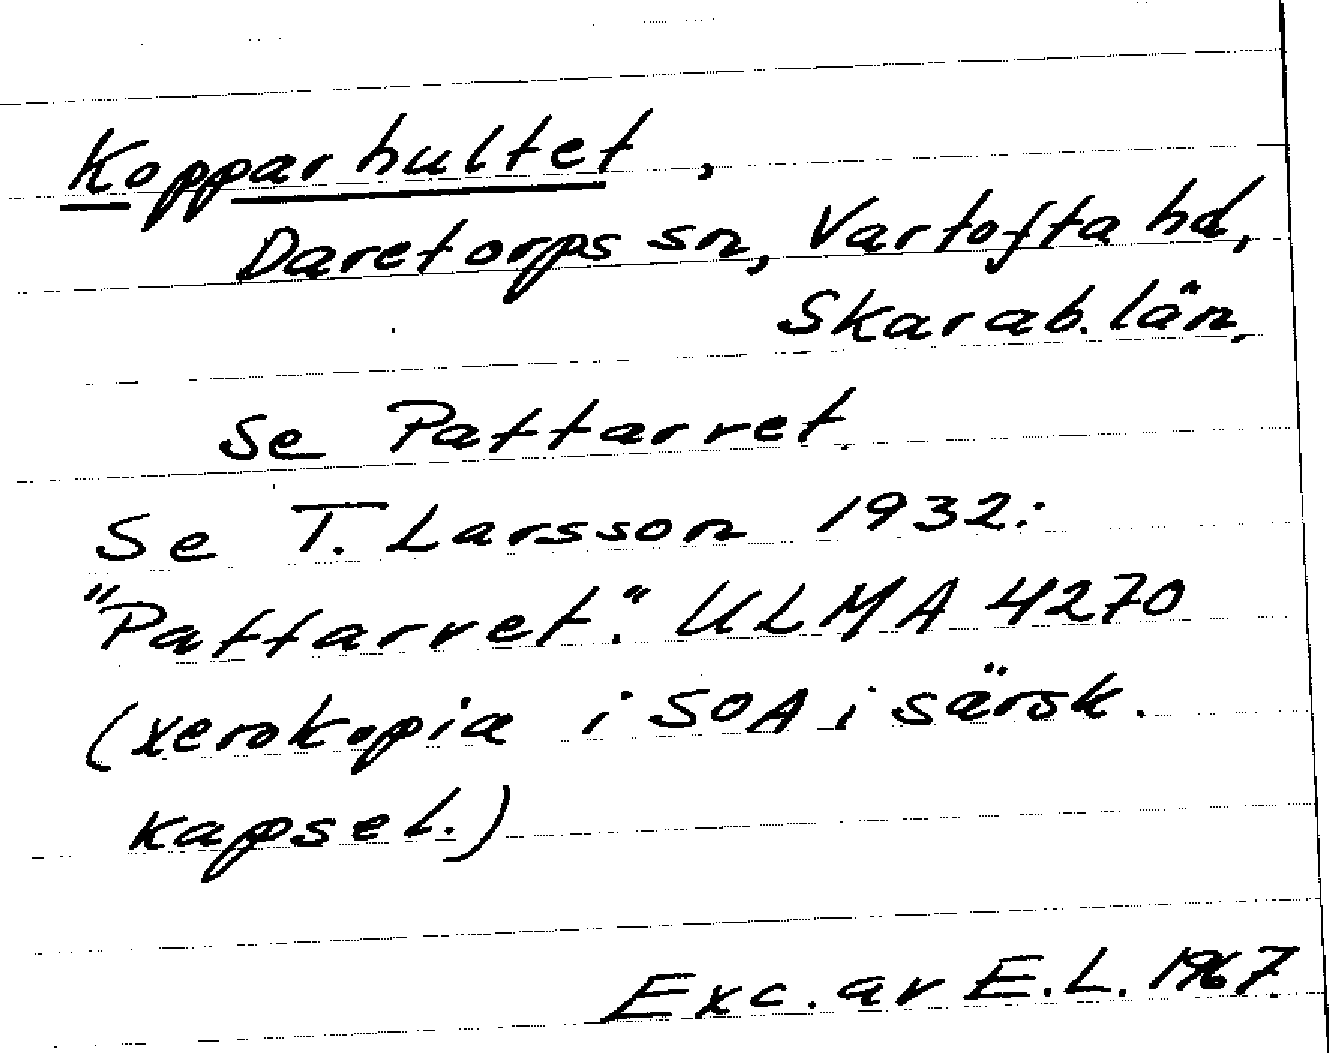 Kopparhultet,
Daretorps sn, Vartofta hd,
Skarab. län.
Se Pattarret.
Se T. Larsson 1932:
"Pattarret". ULMA 4270
(xerokopia i SOA i särsk.
kapsel.)
Exc. av E.L. 1967